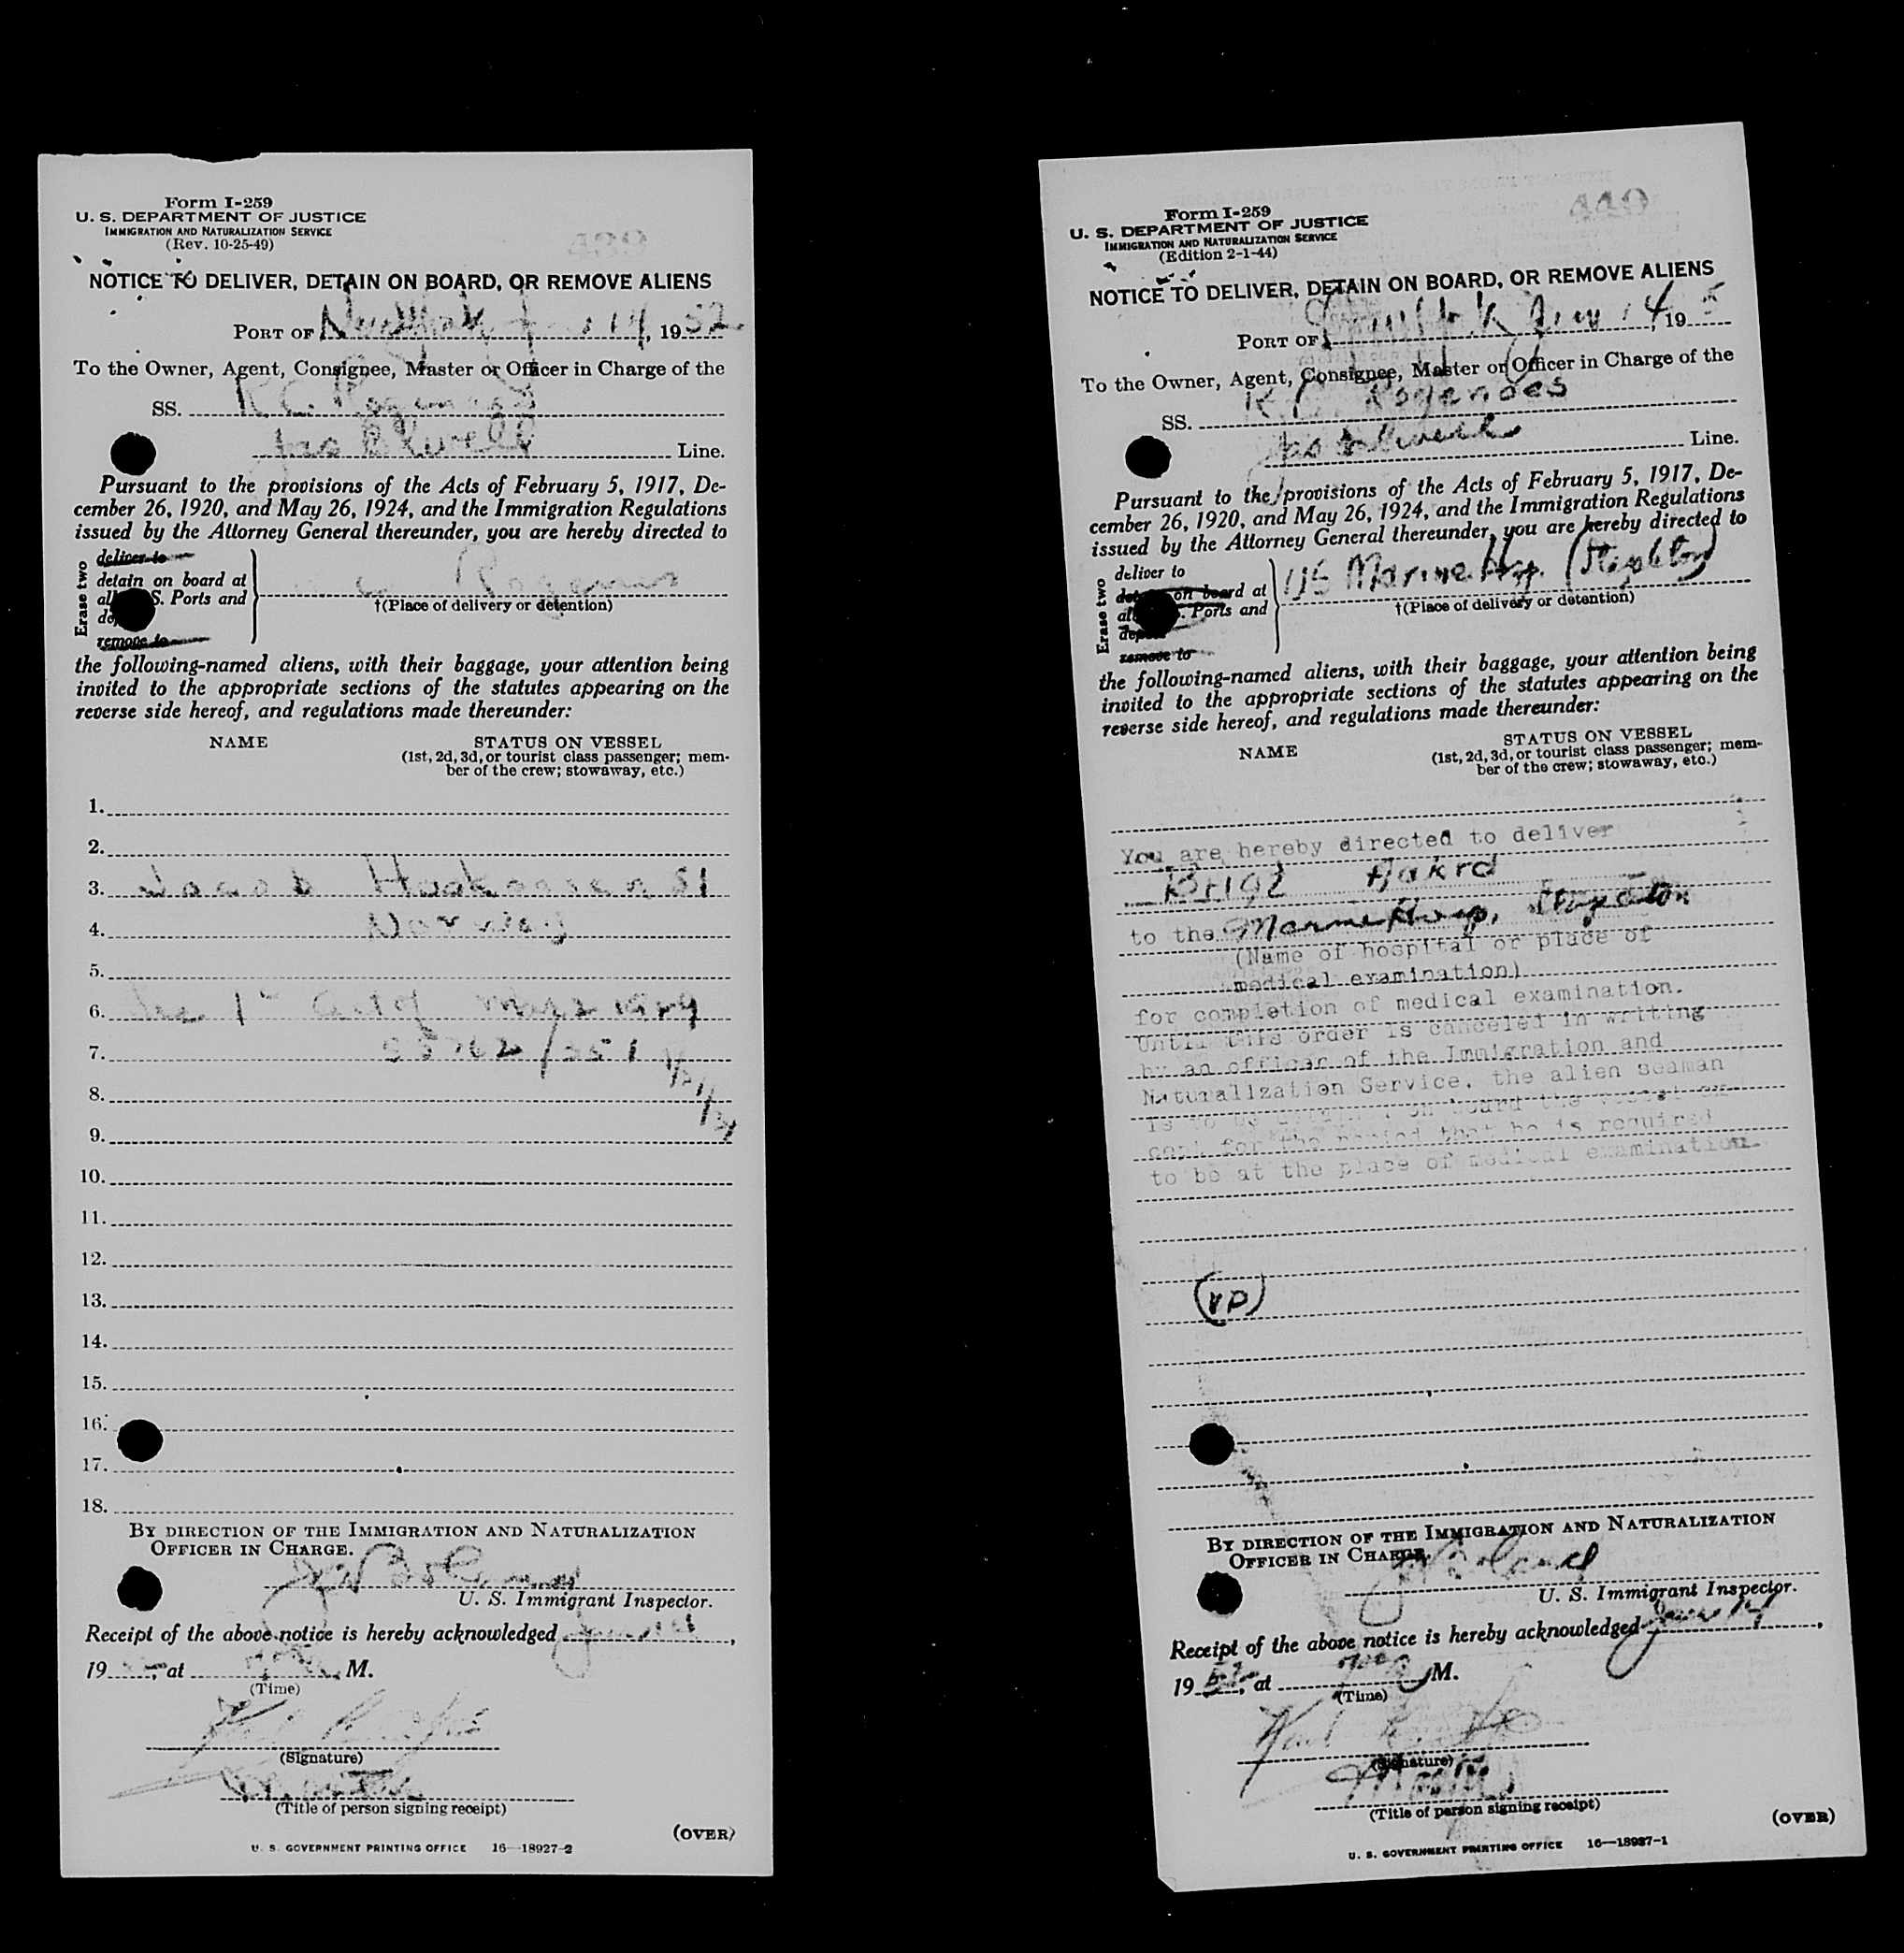 Form I-259
U. S. DEPARTMENT OF JUSTICE
IMMIGRATION AND NATURALIZATION SERVICE
(Rev. 10-25-49)
NOTICE TO DELIVER, DETAIN ON BOARD, OR REMOVE ALIENS
PORT OF New York 14, 1952
To the Owner, Agent, Consignee, Master or Officer in Charge of the
SS.
Line.
Pursuant to the provisions of the Acts of February 5, 1917, De-
cember 26, 1920, and May 26, 1924, and the Immigration Regulations
issued by the Attorney General thereunder, you are hereby directed to
Erase two
deliver to
detain on board at
S. Ports and
remove to
†(Place of delivery or detention)
the following-named aliens, with their baggage, your attention being
invited to the appropriate sections of the statutes appearing on the
reverse side hereof, and regulations made thereunder:
NAME STATUS ON VESSEL
(1st, 2d, 3d, or tourist class passenger; mem-
ber of the crew; stowaway, etc.)
1.
2.
3. Jacob
4. Norway
5.
6.
7.
8.
9.
10.
11.
12.
13.
14.
15.
16.
17.
18.
BY DIRECTION OF THE IMMIGRATION AND NATURALIZATION
OFFICER IN CHARGE.
U. S. Immigrant Inspector.
Receipt of the above notice is hereby acknowledged
19 , at M.
(Time)
(Signature)
(Title of person signing receipt)
(OVER)
U. S. GOVERNMENT PRINTING OFFICE 16—18927-2
449
Form I-259
U. S. DEPARTMENT OF JUSTICE
IMMIGRATION AND NATURALIZATION SERVICE
(Edition 2-1-44)
NOTICE TO DELIVER, DETAIN ON BOARD, OR REMOVE ALIENS
PORT OF New York 14, 195
To the Owner, Agent, Consignee, Master or Officer in Charge of the
SS.
Line.
Pursuant to the provisions of the Acts of February 5, 1917, De-
cember 26, 1920, and May 26, 1924, and the Immigration Regulations
issued by the Attorney General thereunder, you are hereby directed to
Erase two
deliver to
on board at
Ports and
remove to
US Marine Hosp. (Stapleton)
†(Place of delivery or detention)
the following-named aliens, with their baggage, your attention being
invited to the appropriate sections of the statutes appearing on the
reverse side hereof, and regulations made thereunder:
NAME STATUS ON VESSEL
(1st, 2d, 3d, or tourist class passenger; mem-
ber of the crew; stowaway, etc.)
You are hereby directed to deliver
to the Marine Hosp, Stapleton
(Name of hospital or place of
medical examination)
for completion of medical examination.
Until this order is canceled in writing
by an officer of the Immigration and
Naturalization Service, the alien seaman
is to be on board the vessel ex-
cept for the period that he is required
to be at the place of medical examination
BY DIRECTION OF THE IMMIGRATION AND NATURALIZATION
OFFICER IN CHARGE.
U. S. Immigrant Inspector.
Receipt of the above notice is hereby acknowledged
1952, at M.
(Time)
(Signature)
(Title of person signing receipt)
(OVER)
U. S. GOVERNMENT PRINTING OFFICE 16—18927-1